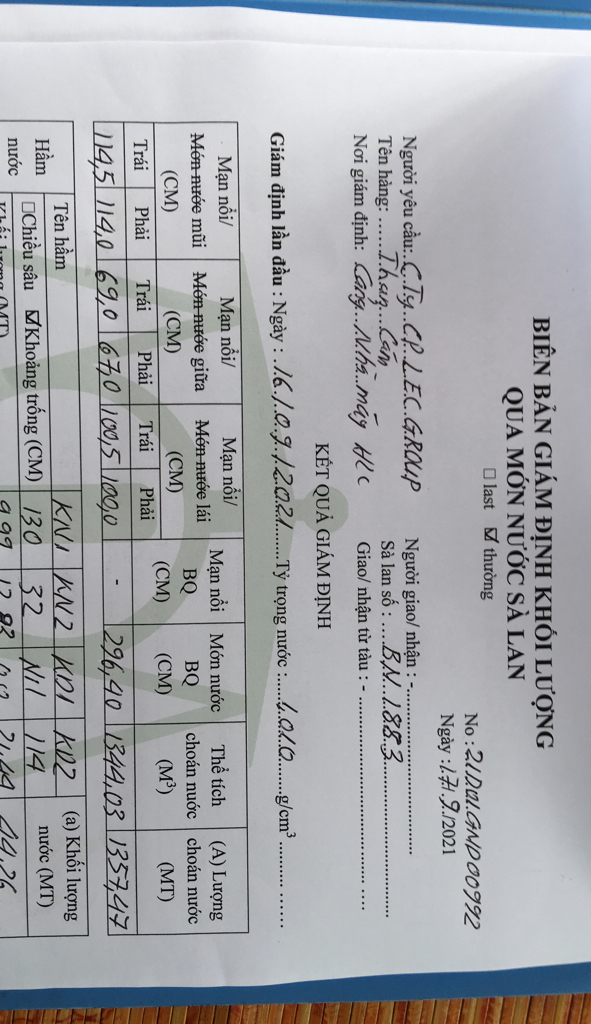 BIÊN BẢN GIÁM ĐỊNH KHỐI LƯỢNG
QUA MỚN NƯỚC SÀ LAN
☐ last ☑ thường
No : 21DM.GND00992
Ngày : 17/9/2021
Người yêu cầu: C.Ty...CP.LEC.GROUP
Người giao/ nhận : -
Tên hàng: Than Cám
Sà lan số : BN.1883
Nơi giám định: Cảng Nhà máy
Giao/ nhận từ tàu : -
KẾT QUẢ GIÁM ĐỊNH
Giám định lần đầu : Ngày : 16/09/2021 Tỷ trọng nước : 1.010 g/cm³
Mạn nổi/ Mớn nước mũi (CM) Mạn nổi/ Mớn nước giữa (CM) Mạn nổi/ Mớn nước lái (CM) Mạn nổi BQ (CM) Mớn nước BQ (CM) Thể tích choán nước (M³) (A) Lượng choán nước (MT)
Trái Phải Trái Phải Trái Phải
114,5 114,0 69,0 67,0 100,5 100,0 - 296,40 1344,03 1357,47
Hầm nước Tên hầm KN1 KN2 KD1 KD2 (a) Khối lượng nước (MT)
☐Chiều sâu ☑Khoảng trống (CM) 130 32 N11 114
Khối lượng (MT) 9.99 21,49 44,26